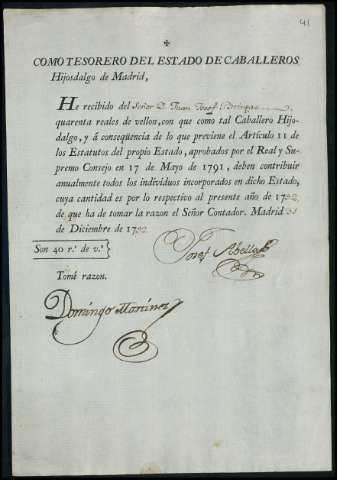 41
COMO TESORERO DEL ESTADO DE CABALLEROS
Hijosdalgo de Madrid,
He recibido del Señor D. Juan Josef Bringas
quarenta reales de vellon, con que como tal Caballero Hijo-
dalgo, y á conseqüencia de lo que previene el Artículo 11 de
los Estatutos del propio Estado, aprobados por el Real y Su-
premo Consejo en 17 de Mayo de 1791, deben contribuir
anualmente todos los individuos incorporados en dicho Estado,
cuya cantidad es por lo respectivo al presente año de 1792,
de que ha de tomar la razon el Señor Contador. Madrid 31
de Diciembre de 1792
Son 40 r.s de v.n
Josef Abella
Tomé razon.
Domingo Martinez